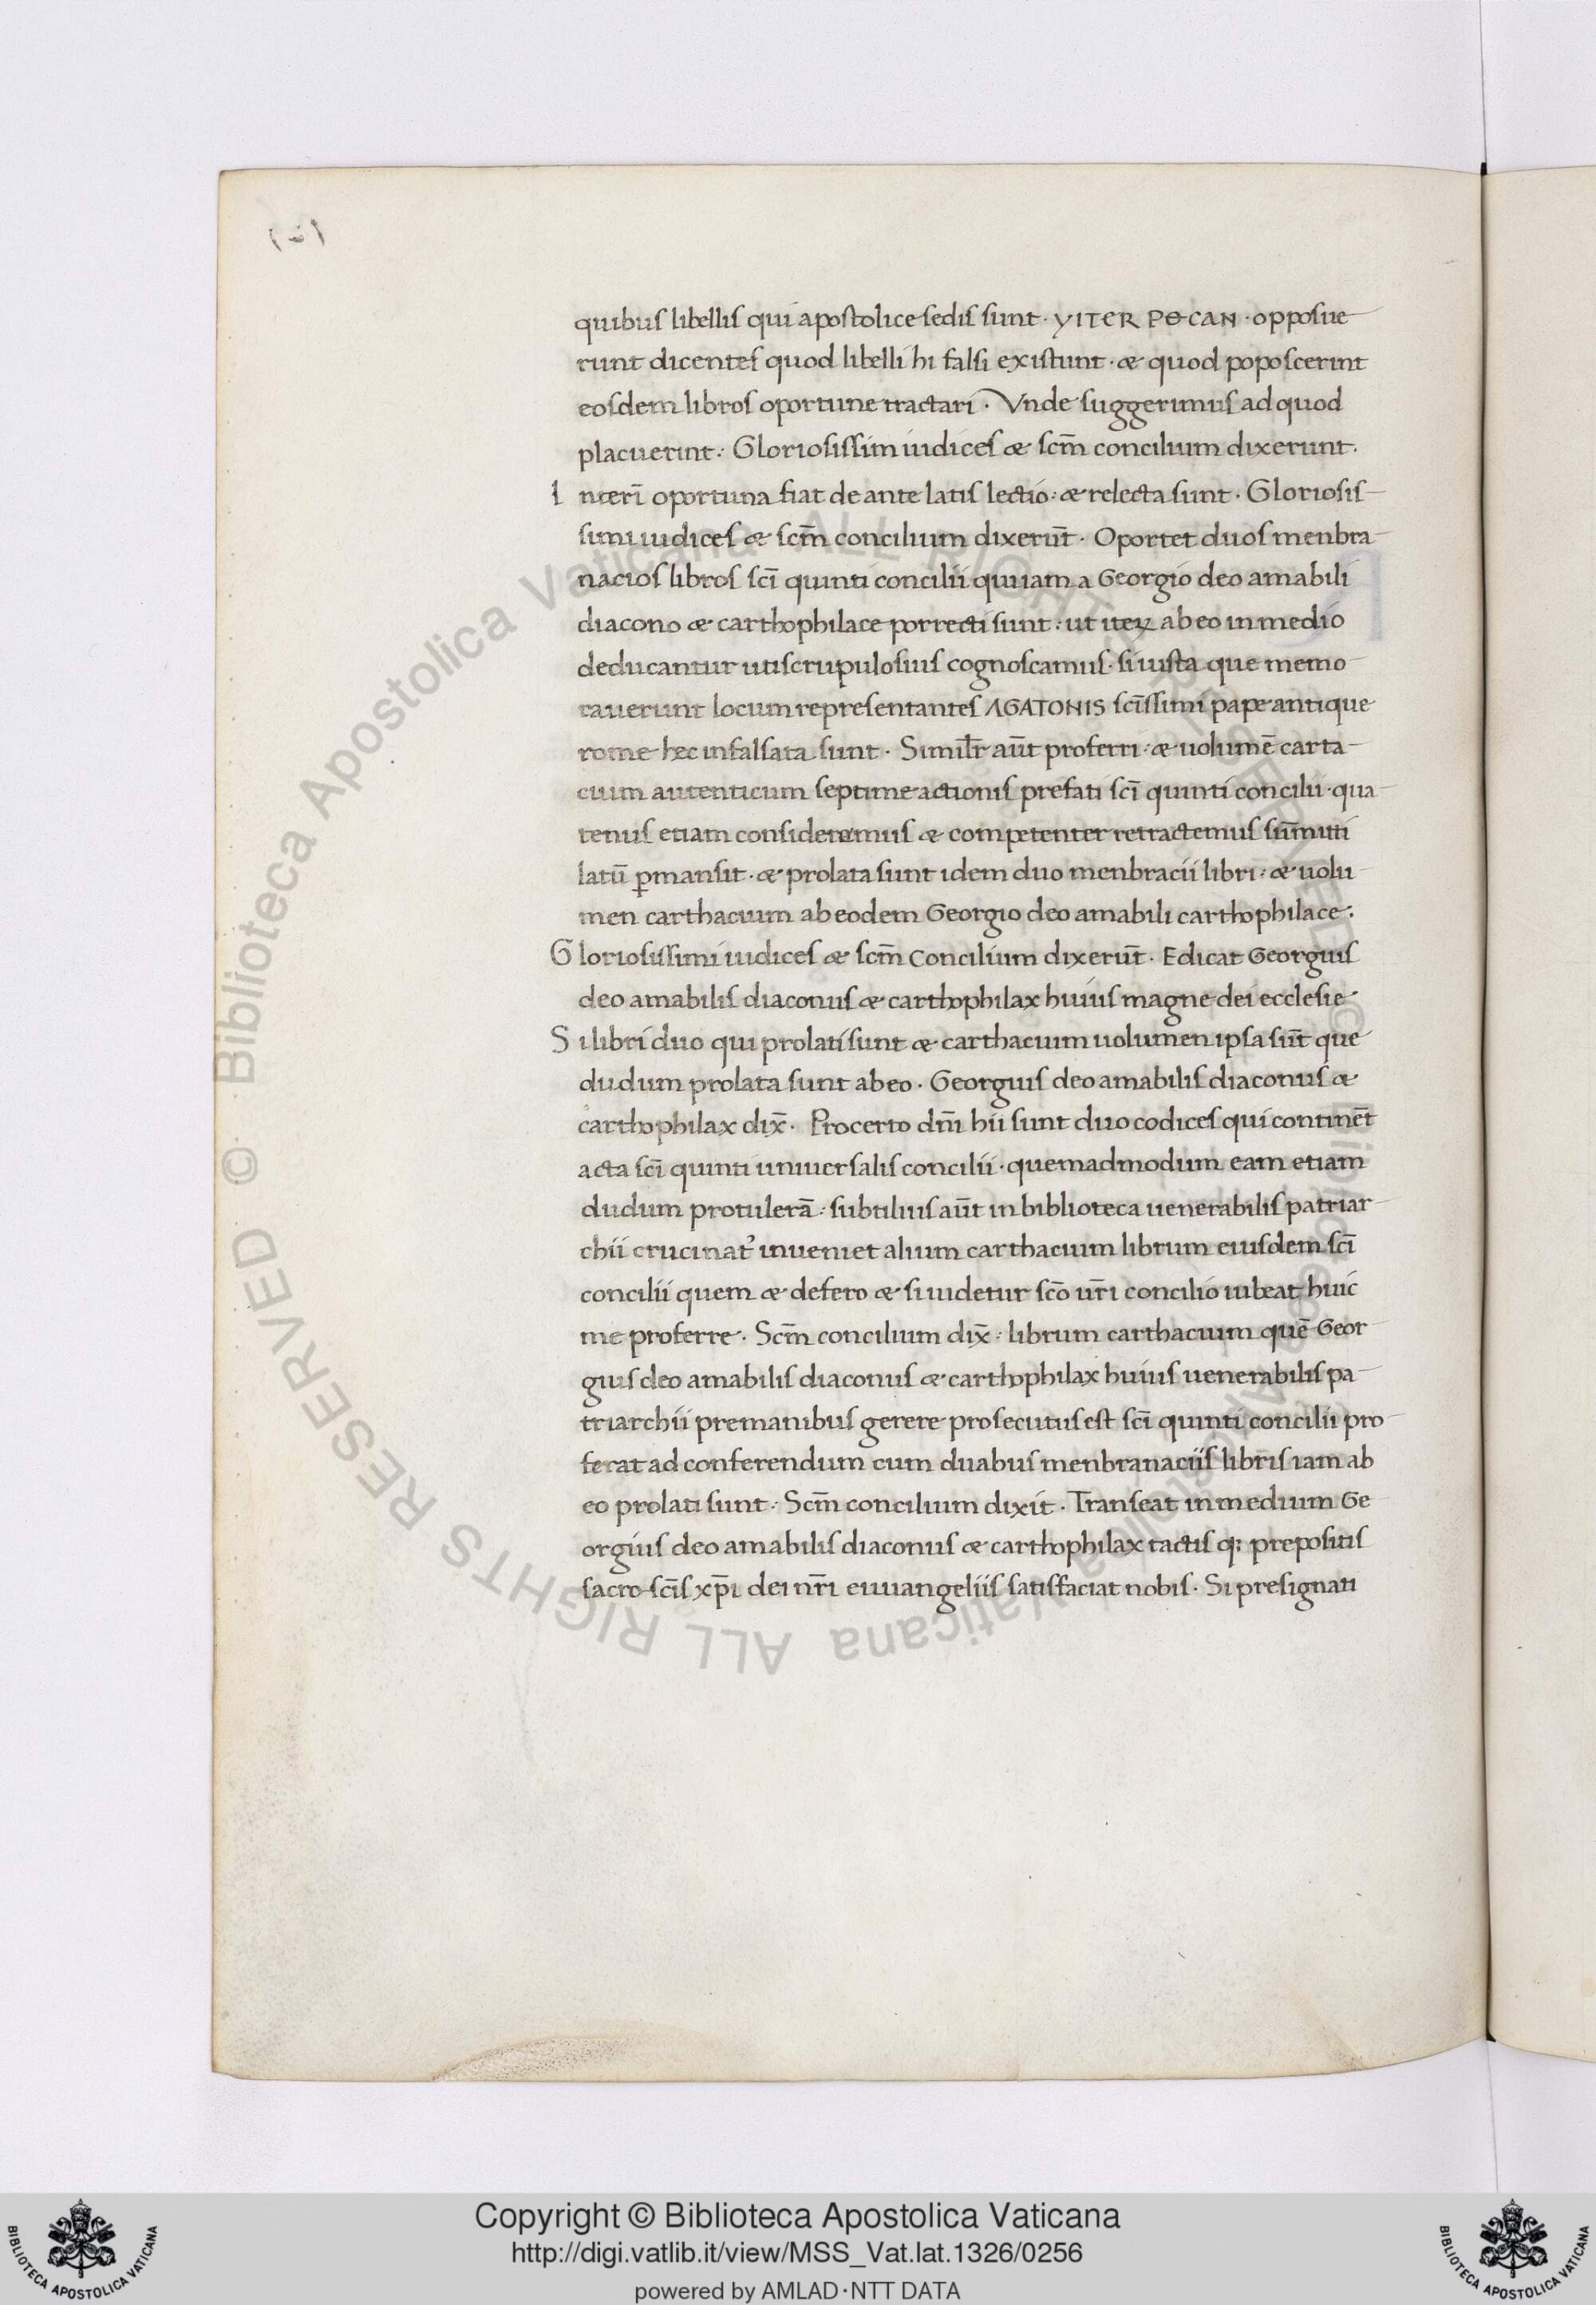 quibus libellis qui apostolice sedis sunt · YITER PΘCAN · opposue
runt dicentes quod libelli hi falsi existunt · & quod poposcerint
eosdem libros oportune tractari · Vnde suggerimus ad quod
placuerint : Gloriosissim iudices & scm̄ concilium dixerunt .
I nterī oportuna fiat de ante latis lectio : & relecta sunt . Gloriosis
simi iudices & scm̄ concilium dixerūt . Oportet duos menbra
nacios libros scī quinti concilii qui iam a Georgio deo amabili
diacono & carthophilace porrecti sunt : ut iteꝝ ab eo in medio
deducantur uti scrupulosius cognoscamus · si iusta que memo
rauerunt locum representantes AGATONIS scīssimi pape antique
rome hec infalsata sunt . Similr̄ aūt proferri : & uolumē carta
cium autenticum septime actionis prefati scī quinti concilii · qua
tenus etiam consideremus & competenter retractemus sūmiti
latū ꝑmansit · & prolata sunt idem duo menbracii libri : & uolu
men carthacium ab eodem Georgio deo amabili carthophilace :
G loriosissimi iudices & scm̄ Concilium dixerūt . Edicat Georgius
deo amabilis diaconus & carthophilax huius magne dei ecclesie
S i libri duo qui prolati sunt & carthacium uolumen ipsa sūt que
dudum prolata sunt ab eo . Georgius deo amabilis diaconus &
carthophilax dix̄ . Procerto dn̄i hii sunt duo codices qui continēt
acta scī quinti uniuersalis concilii · quemadmodum eam etiam
dudum protulerā : subtilius aūt in biblioteca uenerabilis patriar
chii crucinat᷒ inueniet alium carthacium librum eiusdem scī
concilii quem & defero & si uidetur scō ur̄i concilio iubeat huic
me proferre . Scm̄ concilium dix̄ : librum carthacium quē Geor
gius deo amabilis diaconus & carthophilax huius uenerabilis pa
triarchii premanibus gerere prosecutus est scī quinti concilii pro
ferat ad conferendum cum duabus menbranaciis libris iam ab
eo prolati sunt : Scm̄ concilium dixit . Transeat in medium Ge
orgius deo amabilis diaconus & carthophilax tactis q; prepositis
sacro scīs xp̄i dei nr̄i euuangeliis satisfaciat nobis . Si presignati
© Biblioteca Apostolica Vaticana ALL RIGHTS RESERVED © Biblioteca Apostolica Vaticana ALL RIGHTS RESERVED
Copyright © Biblioteca Apostolica Vaticana
http://digi.vatlib.it/view/MSS_Vat.lat.1326/0256
powered by AMLAD·NTT DATA
BIBLIOTECA APOSTOLICA VATICANA
BIBLIOTECA APOSTOLICA VATICANA